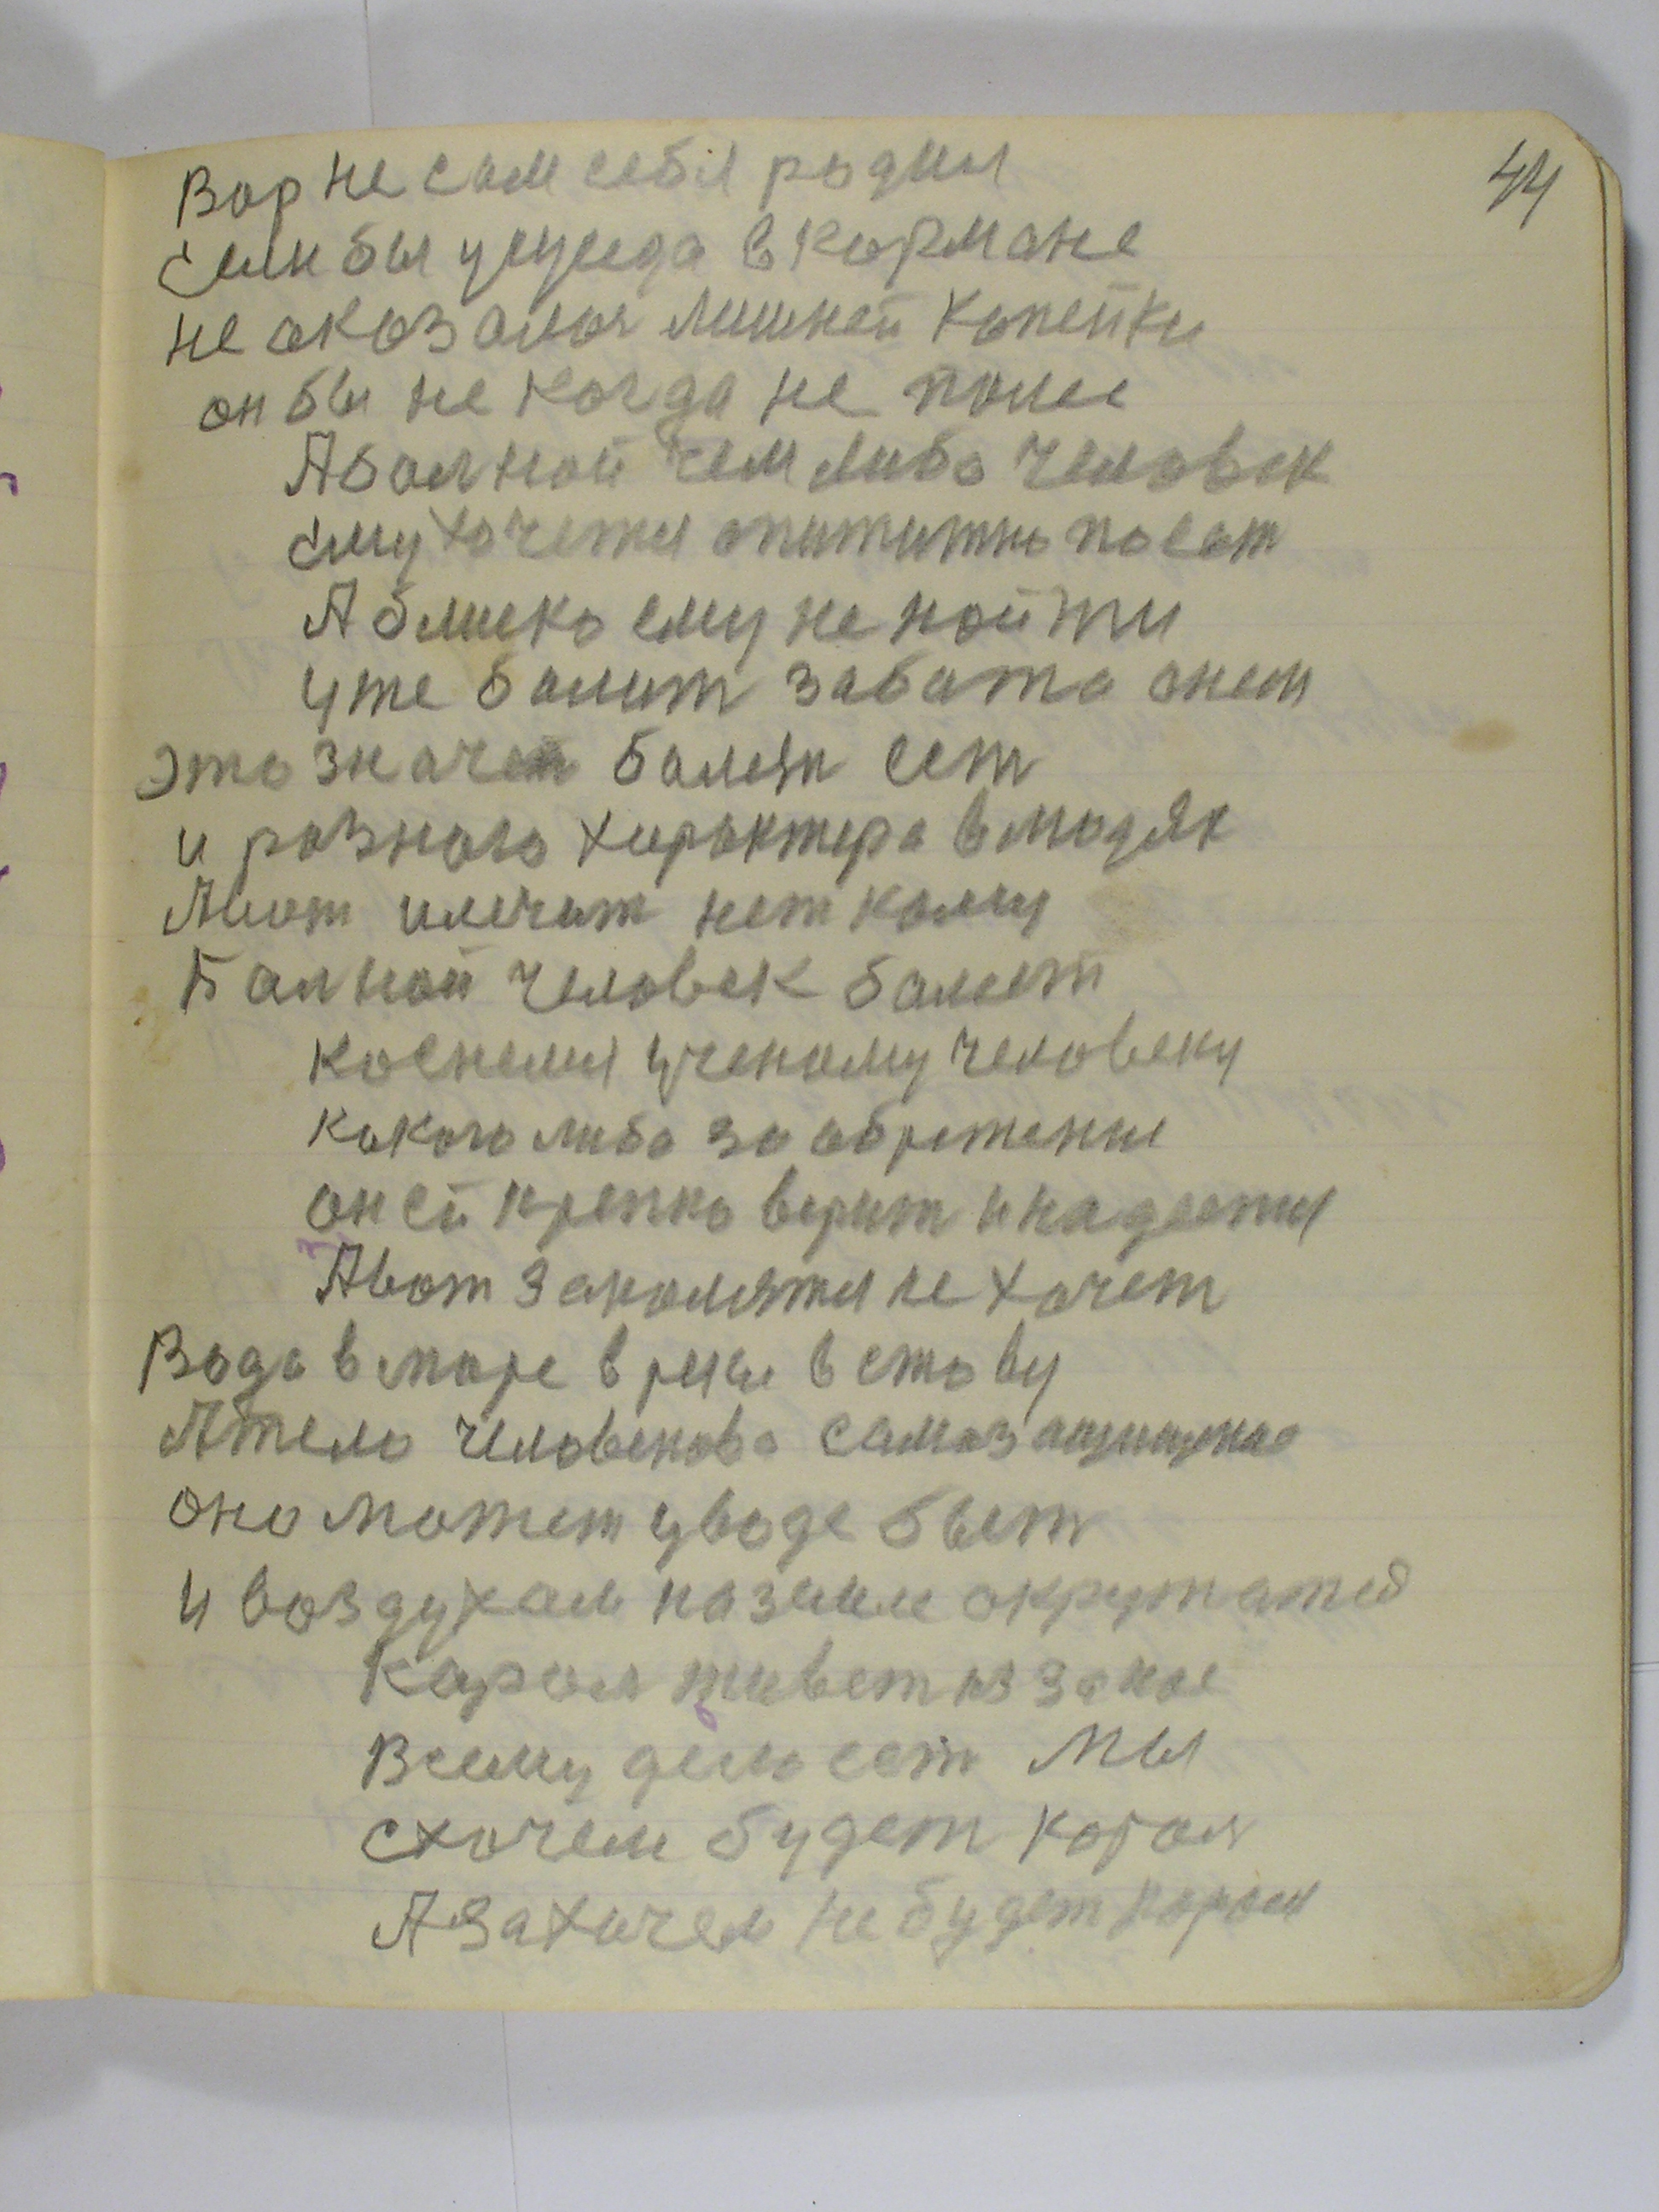 44
Вор не сам себя родил
Если бы усуседа в кормане
не оказалось лишней копейки
он бы не когда не полес
А болной чем либо человек
ему хочетя опититно поест
А близко ему не нойти
уже балит забата онем
Это значет балезн ест
и разного характера в людях
А вот излечит нет кому
Балной человек балеет
коснемся ученому человеку
кокого либо за обретение
он ей крепко верит и надеетця
А вот закалятся не хочет
Вода в море в реки в ставу
А тело человекова самозащищеное
оно может уводе быт
и воздухам на земле окружатся
Карол живет из зокое
Всему дело ест мы
схочем будет карол
А захочем не будет корол